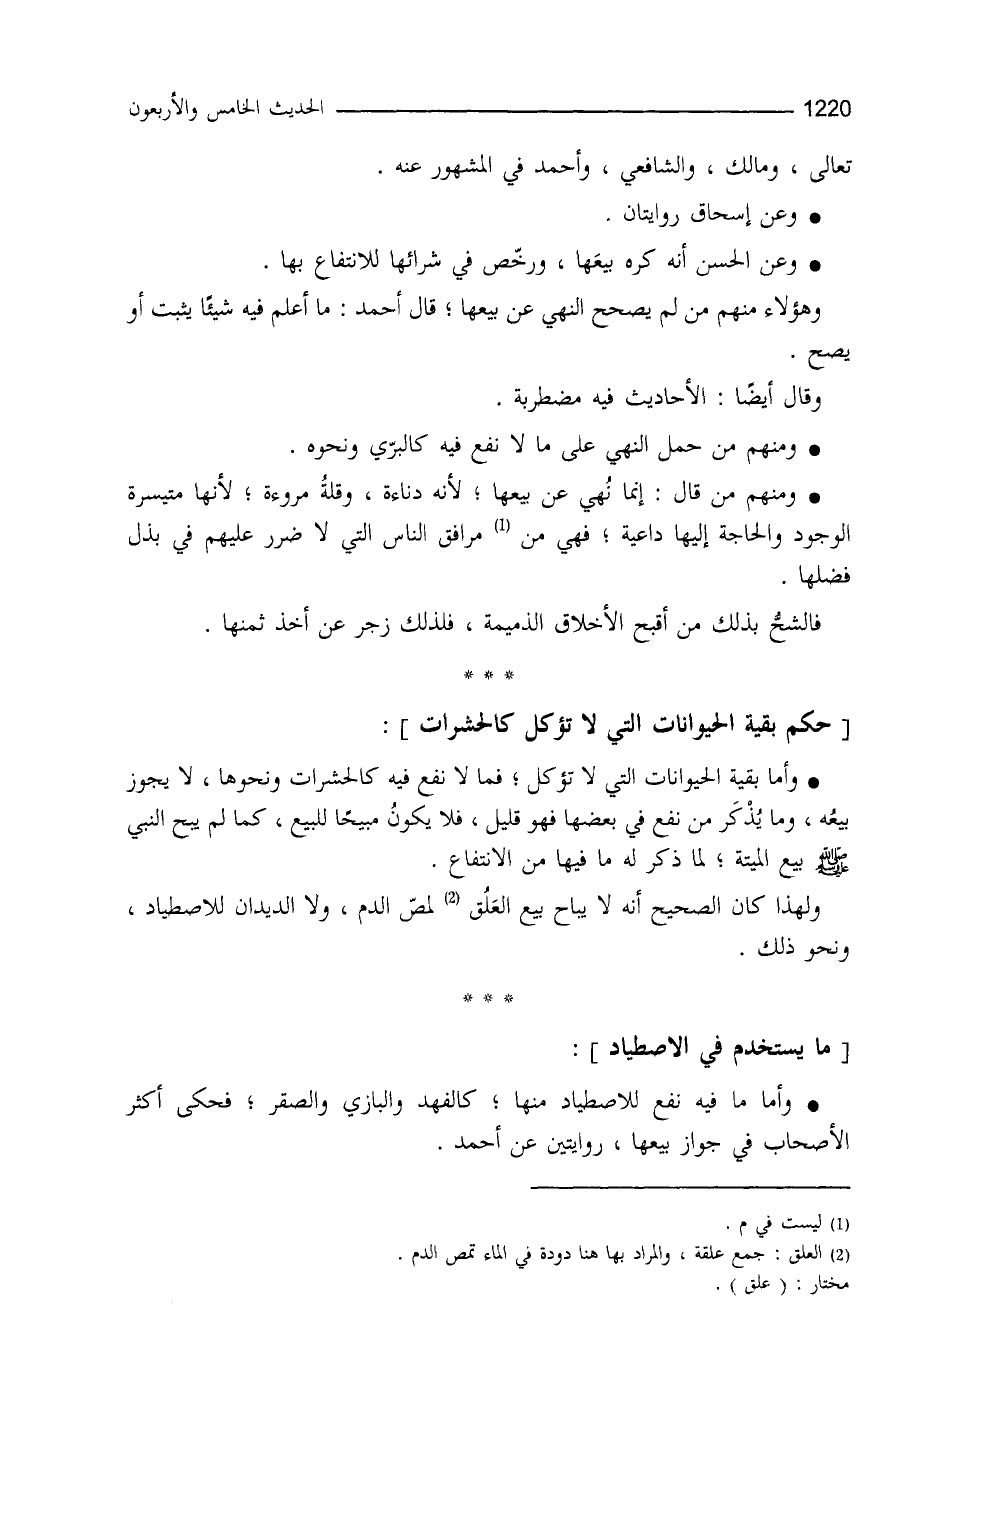 1220 الحديث الخامس والأربعون
تعالى ، ومالك ، والشافعي ، وأحمد في المشهور عنه .
● وعن إسحاق روايتان .
● وعن الحسن أنه كره بيعَها ، ورخّص في شرائها للانتفاع بها .
وهؤلاء منهم من لم يصحح النهي عن بيعها ؛ قال أحمد : ما أعلم فيه شيئًا يثبت أو
يصح .
وقال أيضًا : الأحاديث فيه مضطربة .
● ومنهم من حمل النهي على ما لا نفع فيه كالبرّي ونحوه .
● ومنهم من قال : إنما نُهي عن بيعها ؛ لأنه دناءة ، وقلةُ مروءة ؛ لأنها متيسرة
الوجود والحاجة إليها داعية ؛ فهي من (1) مرافق الناس التي لا ضرر عليهم في بذل
فضلها .
فالشحُّ بذلك من أقبح الأخلاق الذميمة ، فلذلك زجر عن أخذ ثمنها .
* * *
[ حكم بقية الحيوانات التي لا تؤكل كالحشرات ] :
● وأما بقية الحيوانات التي لا تؤكل ؛ فما لا نفع فيه كالحشرات ونحوها ، لا يجوز
بيعُه ، وما يُذْكَر من نفع في بعضها فهو قليل ، فلا يكونُ مبيحًا للبيع ، كما لم يبح النبي
ﷺ بيع الميتة ؛ لما ذكر له ما فيها من الانتفاع .
ولهذا كان الصحيح أنه لا يباح بيع العَلُق (2) لمصّ الدم ، ولا الديدان للاصطياد ،
ونحو ذلك .
* * *
[ ما يستخدم في الاصطياد ] :
● وأما ما فيه نفع للاصطياد منها ؛ كالفهد والبازي والصقر ؛ فحكى أكثر
الأصحاب في جواز بيعها ، روايتين عن أحمد .
(1) ليست في م .
(2) العلق : جمع علقة ، والمراد بها هنا دودة في الماء تمص الدم .
مختار : ( علق ) .